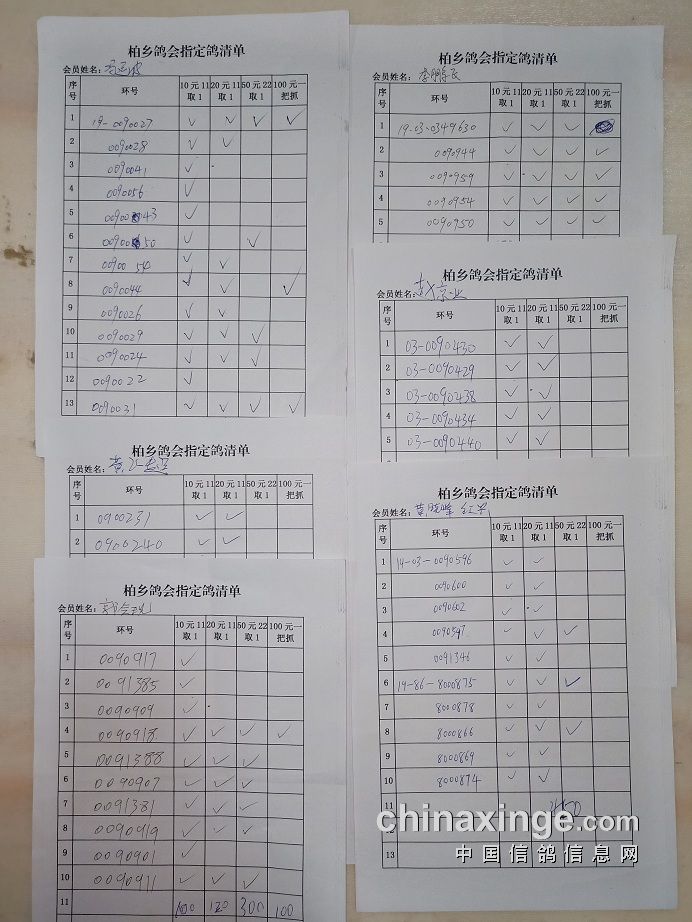 柏乡鸽会指定鸽清单
会员姓名：
序号 环号 10元11取1 20元11取1 50元22取1 100元一把抓
1 19-0090027 ✓ ✓ ✓ ✓
2 0090028 ✓ ✓
3 0090041 ✓
4 0090056 ✓
5 009043 ✓
6 50 ✓ ✓
7 0090050 ✓ ✓
8 0090044 ✓ ✓ ✓
9 0090026 ✓ ✓
10 0090029 ✓ ✓ ✓
11 0090024 ✓ ✓ ✓
12 0090022 ✓
13 0090031 ✓ ✓ ✓ ✓
柏乡鸽会指定鸽清单
会员姓名：
序号 环号 10元11取1 20元11取1 50元22取1 100元一把抓
1 19-03-0349630 ✓ ✓ ✓
2 0090944 ✓ ✓ ✓ ✓
3 0090959 ✓ ✓ ✓ ✓
4 0090954 ✓ ✓ ✓ ✓
5 0090950 ✓ ✓ ✓ ✓
柏乡鸽会指定鸽清单
会员姓名：赵京业
序号 环号 10元11取1 20元11取1 50元22取1 100元一把抓
1 03-0090430 ✓ ✓
2 03-0090429 ✓ ✓
3 03-0090438 ✓ ✓
4 03-0090434 ✓ ✓
5 03-0090440 ✓ ✓
柏乡鸽会指定鸽清单
会员姓名：
序号 环号 10元11取1 20元11取1 50元22取1 100元一把抓
1 0900231 ✓ ✓
2 0900240 ✓ ✓
柏乡鸽会指定鸽清单
会员姓名：
序号 环号 10元11取1 20元11取1 50元22取1 100元一把抓
1 19-03-0090596 ✓ ✓
2 0090600 ✓ ✓
3 0090602 ✓ ✓
4 0090597 ✓ ✓ ✓
5 0091346 ✓ ✓
6 19-86-8000875 ✓ ✓ ✓
7 8000878 ✓ ✓
8 8000866 ✓ ✓ ✓
9 8000869 ✓ ✓
10 8000874 ✓ ✓
11 450
13
柏乡鸽会指定鸽清单
会员姓名：
序号 环号 10元11取1 20元11取1 50元22取1 100元一把抓
1 0090917 ✓
2 0091385 ✓
3 0090909 ✓
4 0090918 ✓ ✓ ✓ ✓
5 0091388 ✓ ✓ ✓
6 0090907 ✓ ✓ ✓
7 0091381 ✓ ✓ ✓
8 0090919 ✓ ✓ ✓
9 0090901 ✓
10 0090911 ✓ ✓ ✓
11 100 120 300 100
chinaxinge.com
中国信鸽信息网